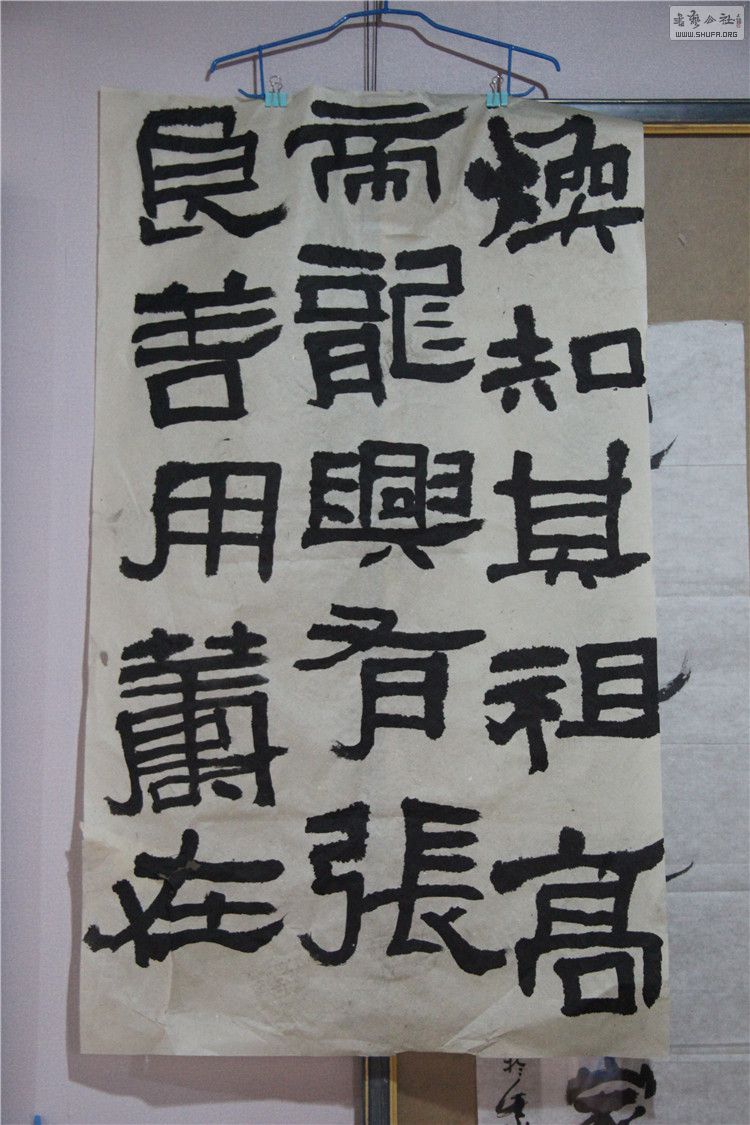 書藝公社
WWW.SHUFA.ORG
煥知其祖高
帝龍興有張
良善用蕭在